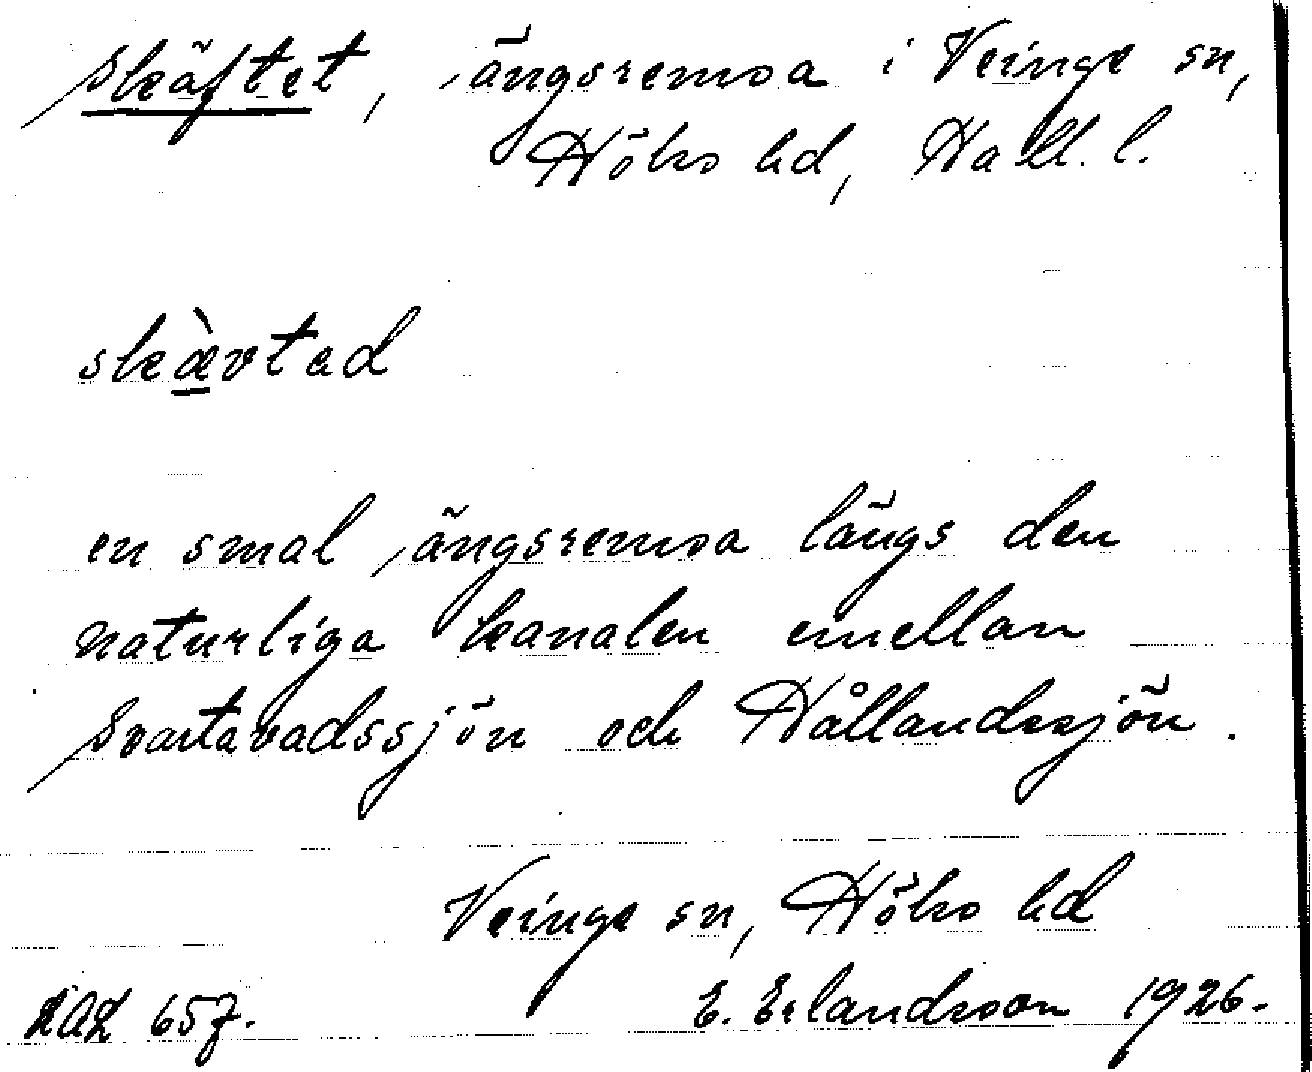 skäftet, ängsremsa i Veinge sn,
Höks hd, Hall. l.
skæ̀vtəd
en smal ängsremsa längs den
naturliga kanalen emellan
Svartavadssjön och Hållandssjön.
Veinge sn, Höks hd
E. Erlandsson 1926.
LAL 657.